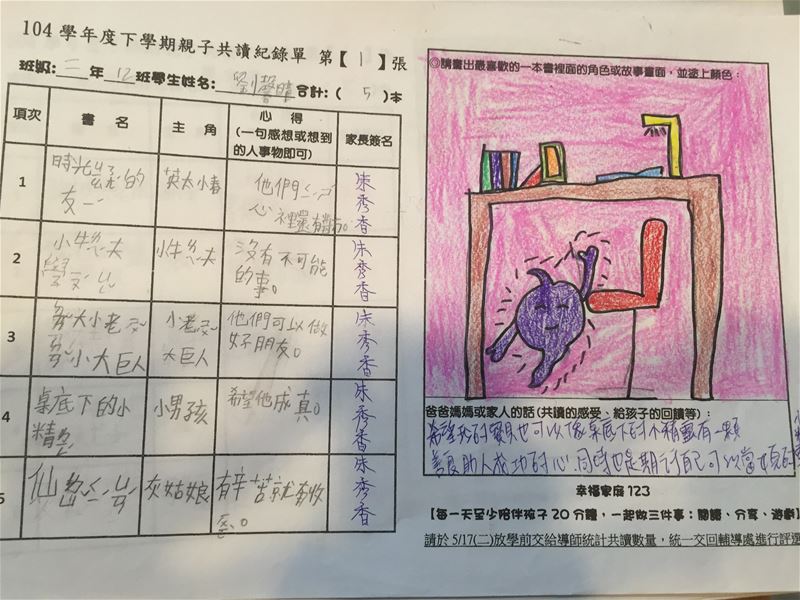 104 學年度下學期親子共讀紀錄單 第【1】張
班級:二年12班學生姓名:劉馨晴合計:( 5 )本
項次 書名 主角 心得
(一句感想或想到
的人事物即可) 家長簽名
1 時光 的
友 英太小春 他們
心裡還有對方。 朱秀香
2 小牛 夫
學 小牛 夫 沒有不可能
的事。 朱秀香
3 大小老
小大巨人 小老
大巨人 他們可以做
好朋友。 朱秀香
4 桌底下的小
精 小男孩 希望他成真。 朱秀香
5 仙 灰姑娘 有辛苦就有收
朱秀香
◎請畫出最喜歡的一本書裡面的角色或故事畫面,並塗上顏色:
爸爸媽媽或家人的話(共讀的感受、給孩子的回饋等):
希望我的寶貝也可以像桌底下的小精靈有一顆
善良助人成功的心,同時也是期許自己可以當
幸福家庭 123
【每一天至少陪伴孩子 20 分鐘,一起做三件事:閱讀、分享、遊戲】
請於 5/17(二)放學前交給導師統計共讀數量,統一交回輔導處進行評選